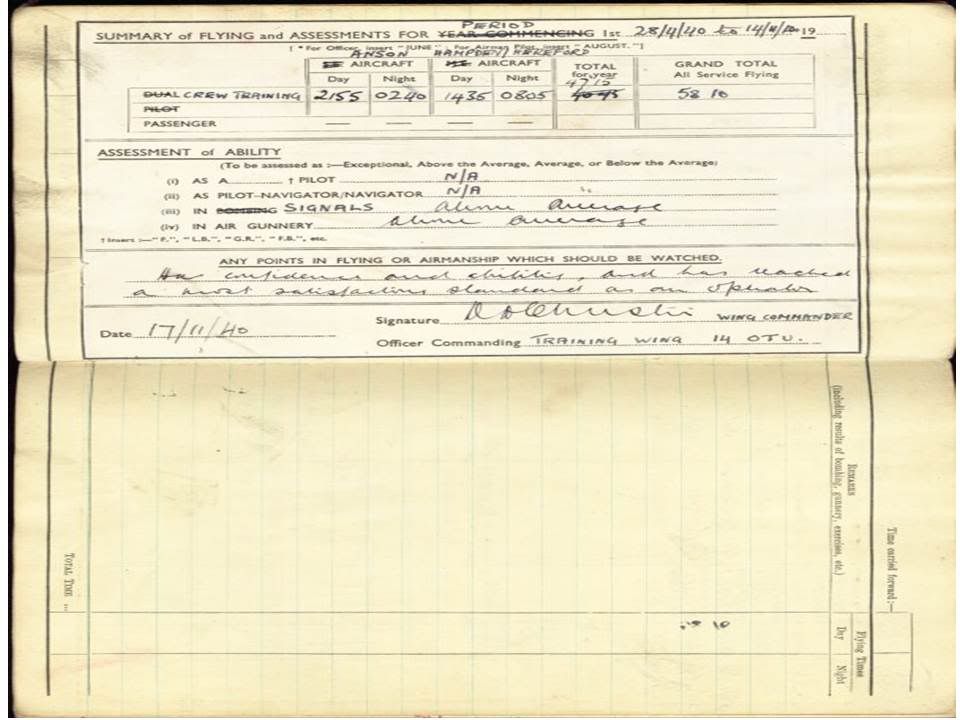 PERIOD
SUMMARY of FLYING and ASSESSMENTS FOR YEAR COMMENCING 1st 28/4/40 to 14/11/40 19
[ *For Officer, insert "JUNE"; For Airman Pilot, insert "AUGUST." ]
ANSON HAMPDEN/HEREFORD
S.E. AIRCRAFT M.E. AIRCRAFT TOTAL for year GRAND TOTAL All Service Flying
Day Night Day Night
4715
DUAL CREW TRAINING 2155 0240 1435 0805 58 10
PILOT
PASSENGER — — — —
ASSESSMENT of ABILITY
(To be assessed as :—Exceptional, Above the Average, Average, or Below the Average)
(i) AS A † PILOT N/A
(ii) AS PILOT-NAVIGATOR/NAVIGATOR N/A
(iii) IN BOMBING SIGNALS Above Average
(iv) IN AIR GUNNERY Above Average
† Insert :—"F.", "L.B.", "G.R.", "F.B.", etc.
ANY POINTS IN FLYING OR AIRMANSHIP WHICH SHOULD BE WATCHED.
Has confidence and abilities, and has reached
a most satisfactory standard as an operator
Date 17/11/40
Signature WING COMMANDER
Officer Commanding TRAINING WING 14 OTU.
Time carried forward :—
REMARKS
(including results of bombing, gunnery, exercises, etc.)
Flying Times
Day Night
TOTAL TIME ...